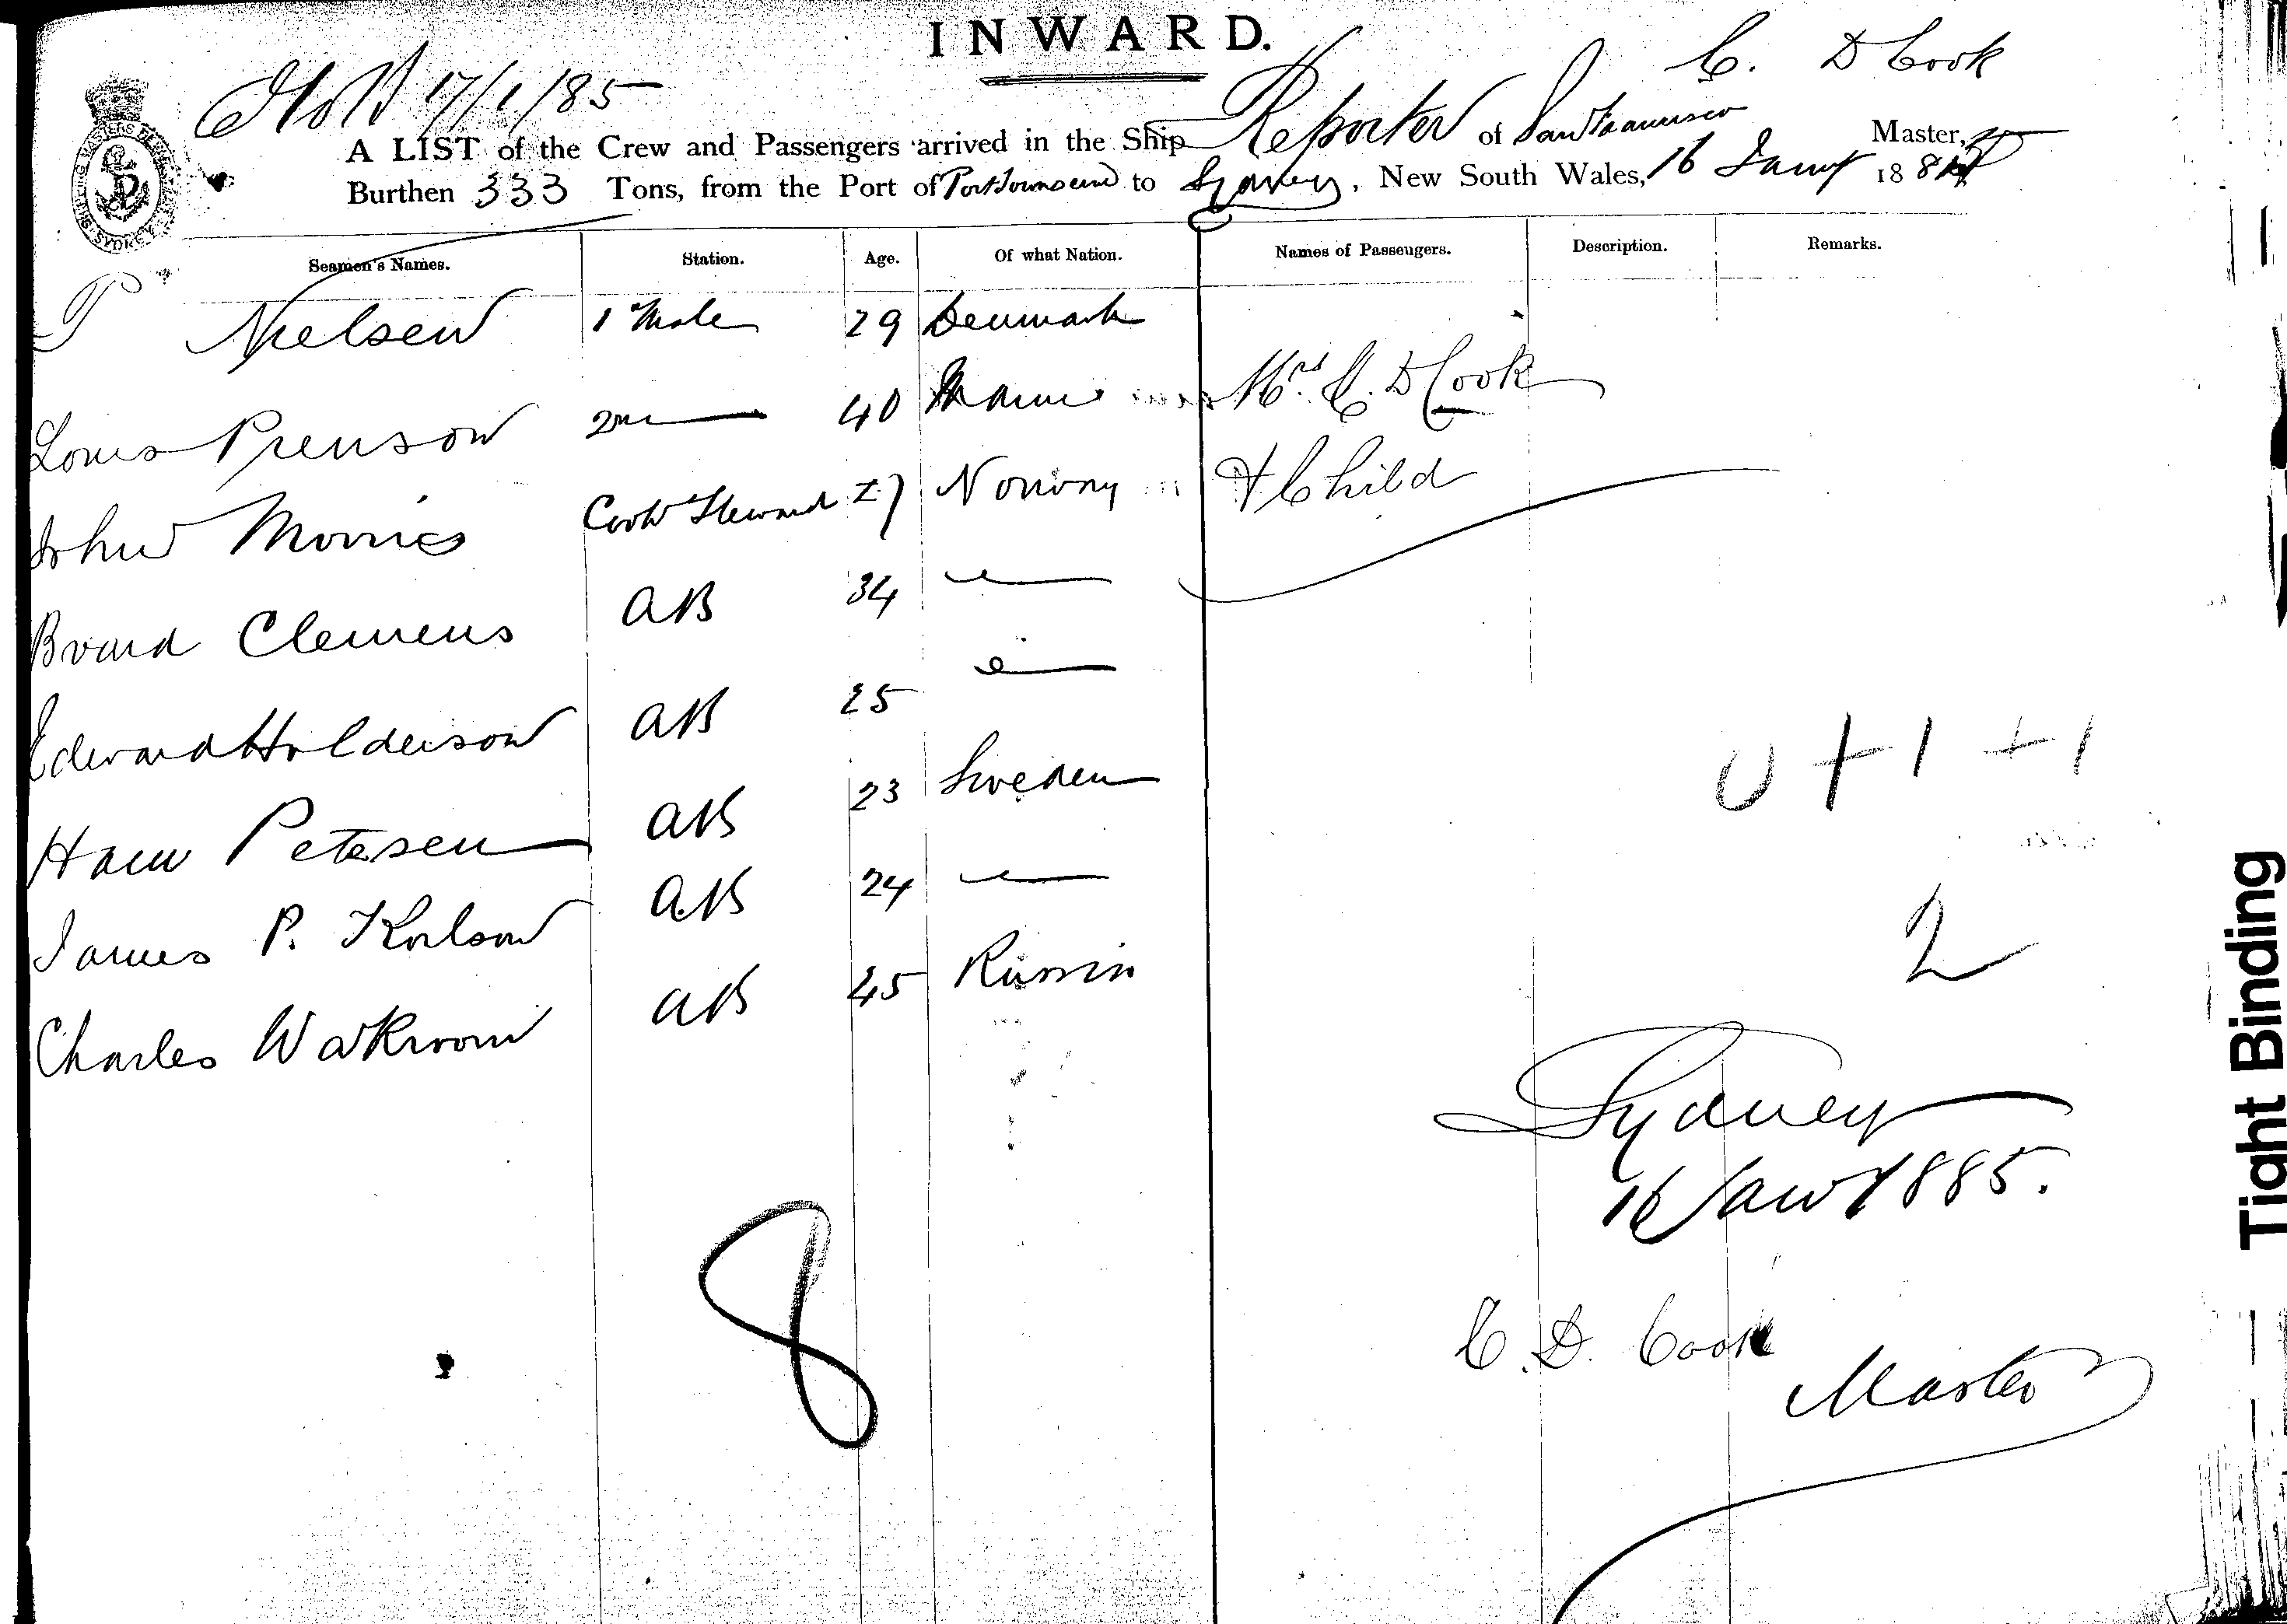 INWARD.
17/1/85
C. D Cook
A LIST of the Crew and Passengers arrived in the Ship Reporter of San Francisco Master,
Burthen 333 Tons, from the Port of Port Townsend to Sydney, New South Wales, 16 Jany 1885
SYDNEY
Seamen's Names. Station. Age. Of what Nation. Names of Passengers. Description. Remarks.
P Nielsen 1 Mate 29 Denmark
Louis Prenson 2nd 40 Mrs C. D Cook
John Morris Cook Steward 27 Norway & Child
Clemens AB 34
Edward Holderson AB 25
Petersen AB 23 Sweden
James P. AB 24
Charles AB 45 Russia
0 + 1 + 1
2
8
Sydney
16 Jany 1885.
C. D. Cook
Master
Tight Binding